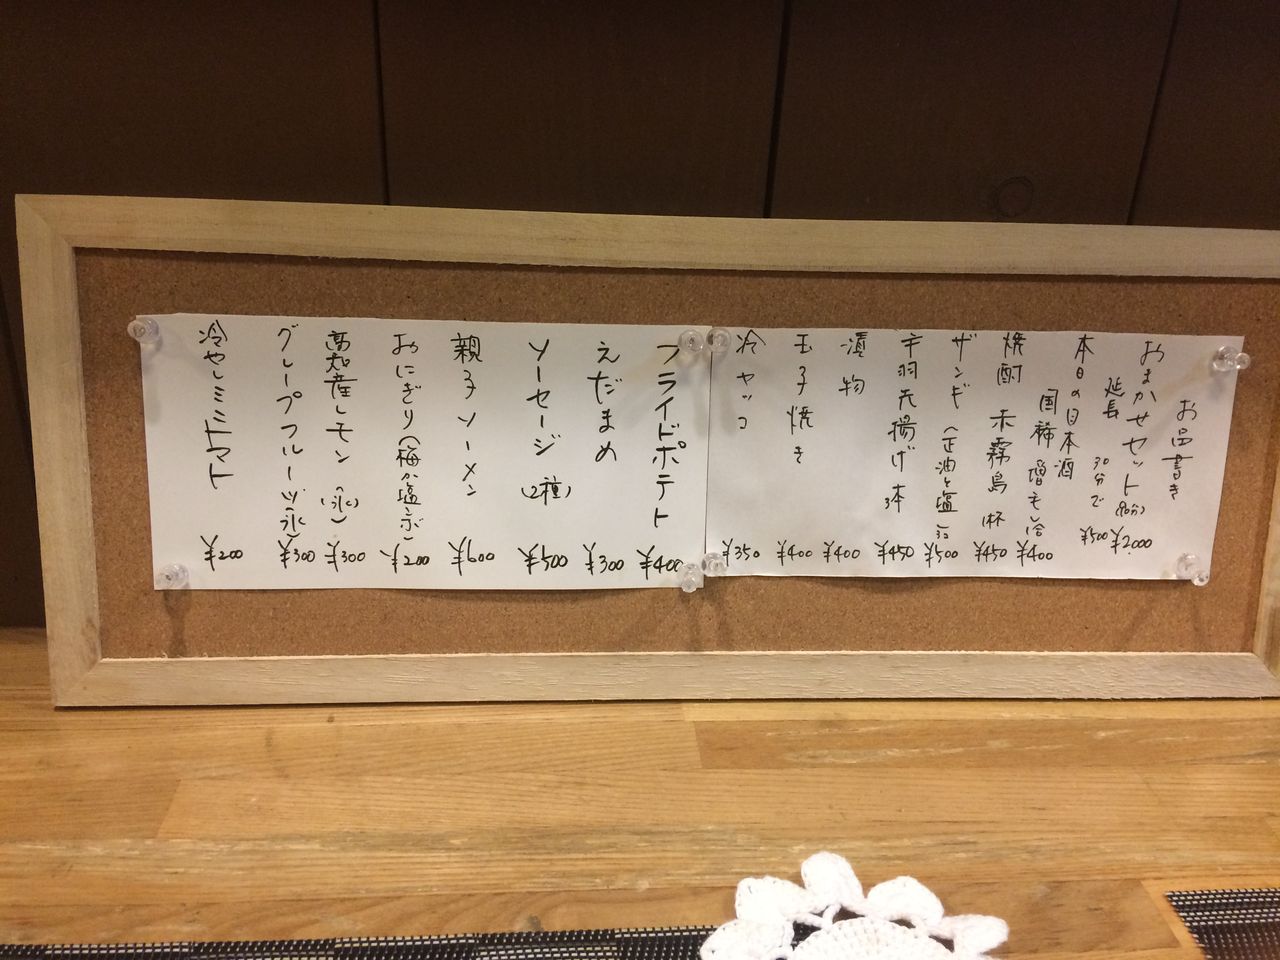 お品書き
おまかせセット(80分) ¥2000
延長 30分で ¥500
本日の日本酒
国稀 増毛 一合 ¥400
焼酎 赤霧島 一杯 ¥450
ザンギ (正油と塩) ¥500
手羽先揚げ 3本 ¥450
漬物 ¥400
玉子焼き ¥400
冷ヤッコ ¥350
フライドポテト ¥400
えだまめ ¥300
ソーセージ (2種) ¥500
親子ソーメン ¥600
おにぎり(梅か塩コンブ) ¥200
高知産レモン (氷) ¥300
グレープフルーツ(氷) ¥300
冷やしミニトマト ¥200